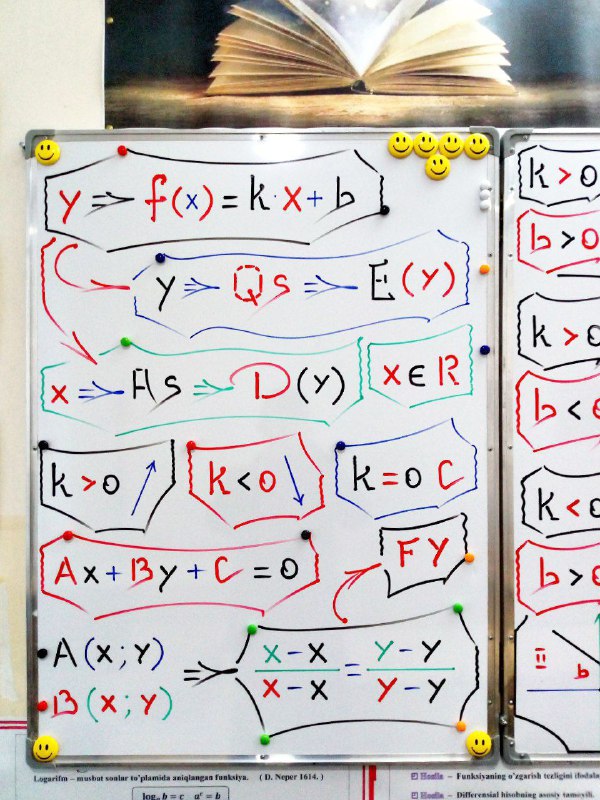 y ⇒ f(x) = k · x + b
y ⇒ Qs ⇒ E(y)
x ⇒ As ⇒ D(y)
x ∈ R
k > 0 ↗
k < 0 ↘
k = 0 C
Ax + By + C = 0
FY
A(x; y)
B(x; y)
⇒ x - x / x - x = y - y / y - y
k > 0
b > 0
k > 0
b < 0
k < 0
b > 0
II
b
Logarifm – musbat sonlar to'plamida aniqlangan funksiya. ( D. Neper 1614. )
Hosila – Funksiyaning o'zgarish tezligini ifodala
Hosila – Differensial hisobning asosiy tamoyili.